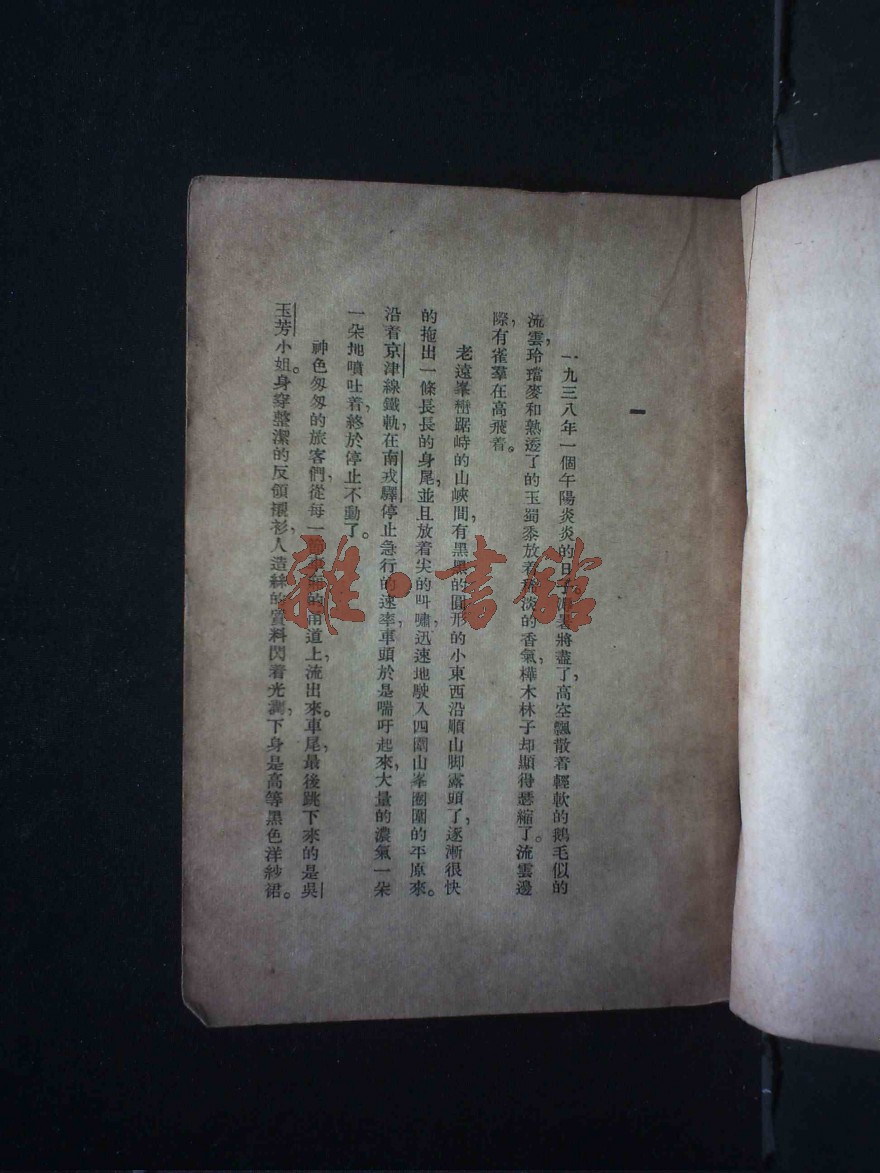 一
一九三八年一個午陽炎炎的日子。暑將盡了，高空飄散着輕軟的鵝毛似的
流雲，玲璫麥和熟透了的玉蜀黍放着稀淡的香氣，樺木林子却顯得瑟縮了。流雲邊
際，有雀羣在高飛着。
老遠峯巒踞峙的山峽間，有黑黑的圓形的小東西沿順山脚露頭了，逐漸很快
的拖出一條長長的身尾，並且放着尖的叫嘯，迅速地駛入四圍山峯圈圍的平原來。
沿着京津線鐵軌，在南戎驛停止急行的速率，車頭於是喘吁起來，大量的濃氣一朵
一朵地噴吐着，終於停止不動了。
神色匆匆的旅客們，從每一的甬道上，流出來。車尾，最後跳下來的是吳
玉芳小姐。身穿整潔的反領襯衫，人造絲的質料閃着光澤，下身是高等黑色洋紗裙。
雜·書館